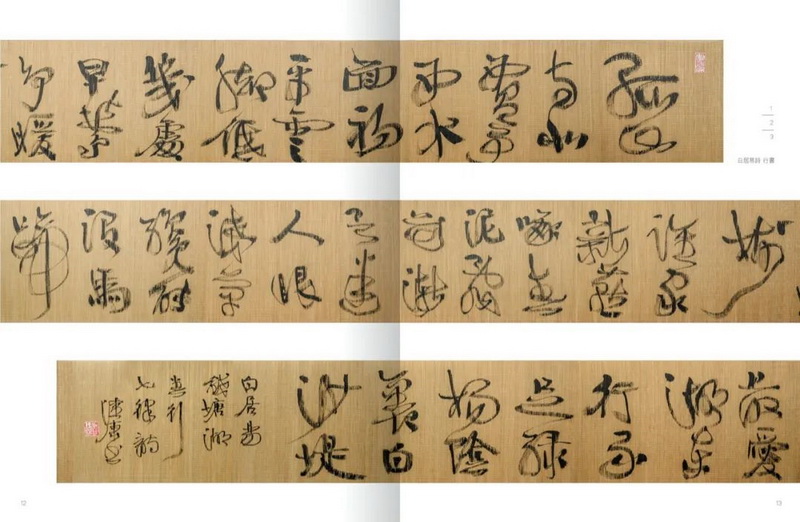 孤山
寺北
賈亭
西水
面初
平雲
腳低
幾處
早鶯
爭暖
樹
誰家
新燕
啄春
泥亂
花漸
欲迷
人眼
淺草
纔能
沒馬
蹄
最愛
湖東
行不
足綠
楊陰
裏白
沙堤
白居易
錢塘湖
春行
七律韵
1
2
3
白居易詩 行書
12
13